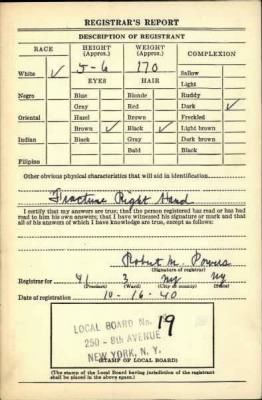 REGISTRAR'S REPORT
DESCRIPTION OF REGISTRANT
RACE HEIGHT (Approx.) WEIGHT (Approx.) COMPLEXION
White ✓ 5-6 170 Sallow
EYES HAIR Light
Negro Blue Blonde Ruddy
Gray Red Dark ✓
Oriental Hazel Brown Freckled
Brown ✓ Black ✓ Light brown
Indian Black Gray Dark brown
Bald Black
Filipino
Other obvious physical characteristics that will aid in identification
Fracture Right Hand
I certify that my answers are true; that the person registered has read or has had
read to him his own answers; that I have witnessed his signature or mark and that
all of his answers of which I have knowledge are true, except as follows:
Robert M. Powers
(Signature of registrar)
Registrar for 41 3 NY NY
(Precinct) (Ward) (City or county) (State)
Date of registration 10-16-40
LOCAL BOARD No. 19
250 - 8th AVENUE
NEW YORK, N. Y.
(STAMP OF LOCAL BOARD)
(The stamp of the Local Board having jurisdiction of the registrant
shall be placed in the above space.)